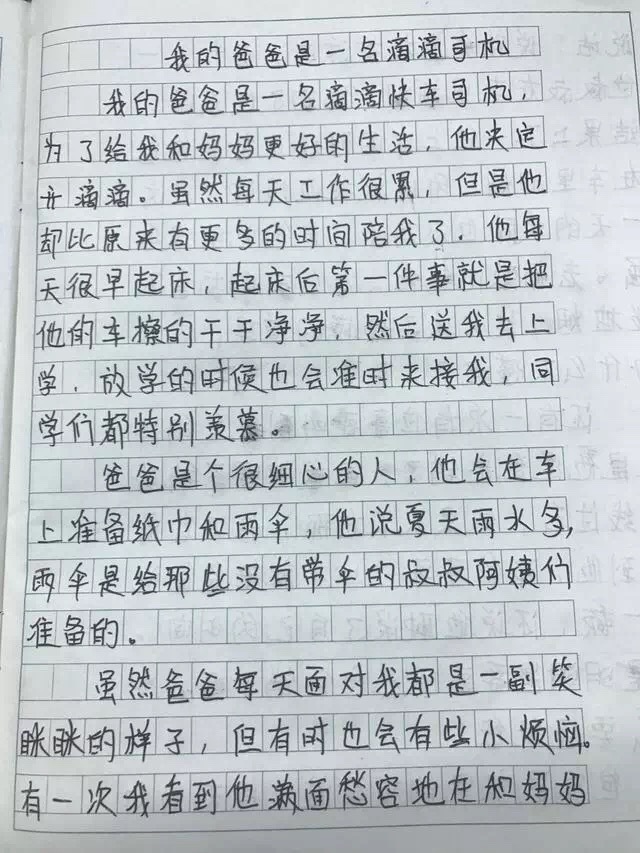 我的爸爸是一名滴滴司机
我的爸爸是一名滴滴快车司机，
为了给我和妈妈更好的生活，他决定
开滴滴。虽然每天工作很累，但是他
却比原来有更多的时间陪我了．他每
天很早起床，起床后第一件事就是把
他的车擦的干干净净，然后送我去上
学．放学的时候也会准时来接我，同
学们都特别羡慕。
爸爸是个很细心的人，他会在车
上准备纸巾和雨伞，他说夏天雨水多，
雨伞是给那些没有带伞的叔叔阿姨们
准备的。
虽然爸爸每天面对我都是一副笑
眯眯的样子，但有时也会有些小烦恼。
有一次我看到他满面愁容地在和妈妈